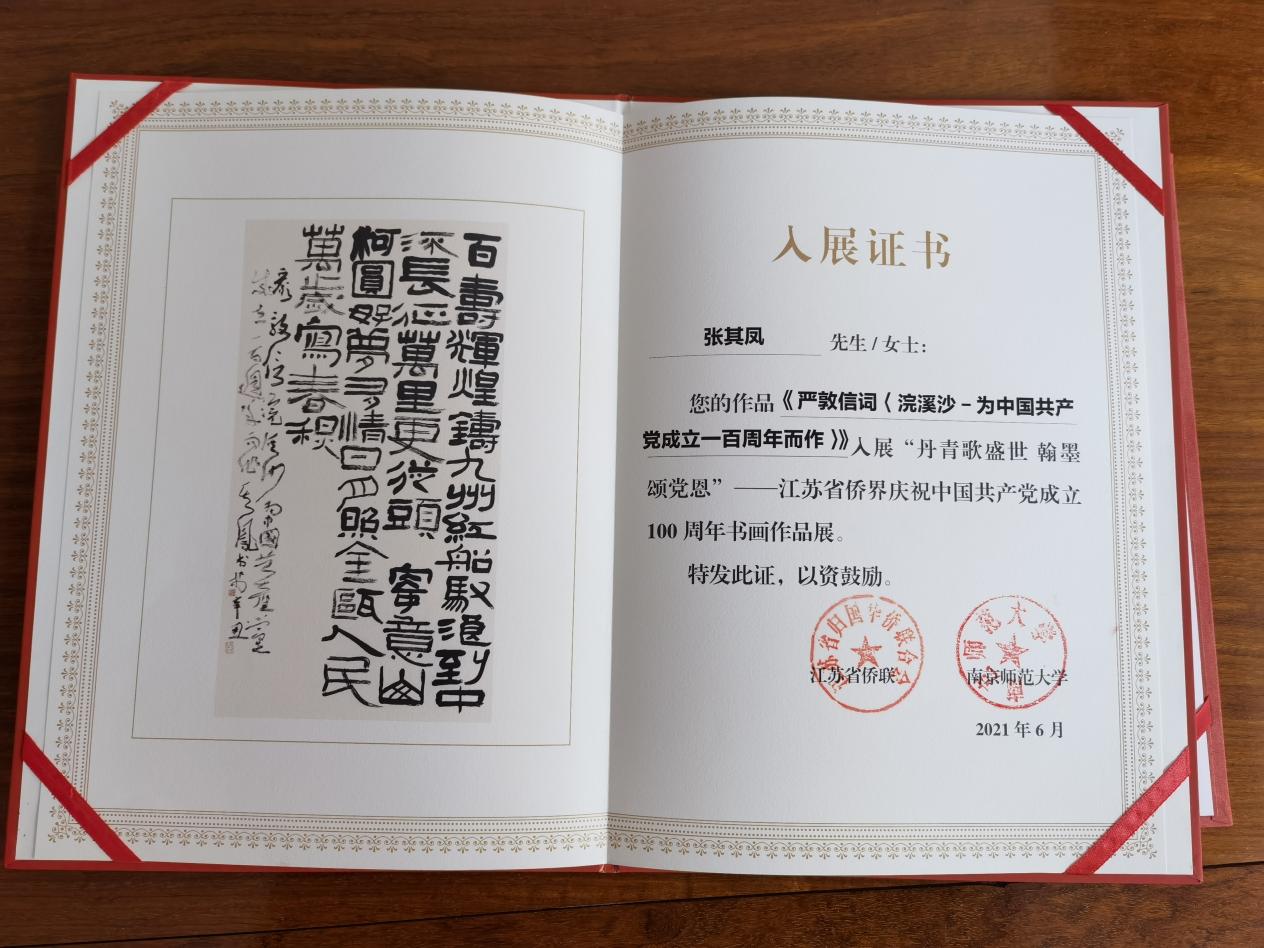 百壽輝煌鑄九州紅船馭浪到中
流長征萬里更從頭 寄意
柯圓好夢多情日月照金甌人民
萬歲寫春穐
嚴敦信詞浣溪沙為中國共產黨
成立一百週年而作其鳳書於辛丑
入展证书
张其凤 先生/女士:
您的作品《严敦信词〈浣溪沙-为中国共产
党成立一百周年而作〉》入展“丹青歌盛世 翰墨
颂党恩”——江苏省侨界庆祝中国共产党成立
100周年书画作品展。
特发此证,以资鼓励。
江苏省归国华侨联合会
江苏省侨联
南京师范大学
南京师范大学
2021年6月